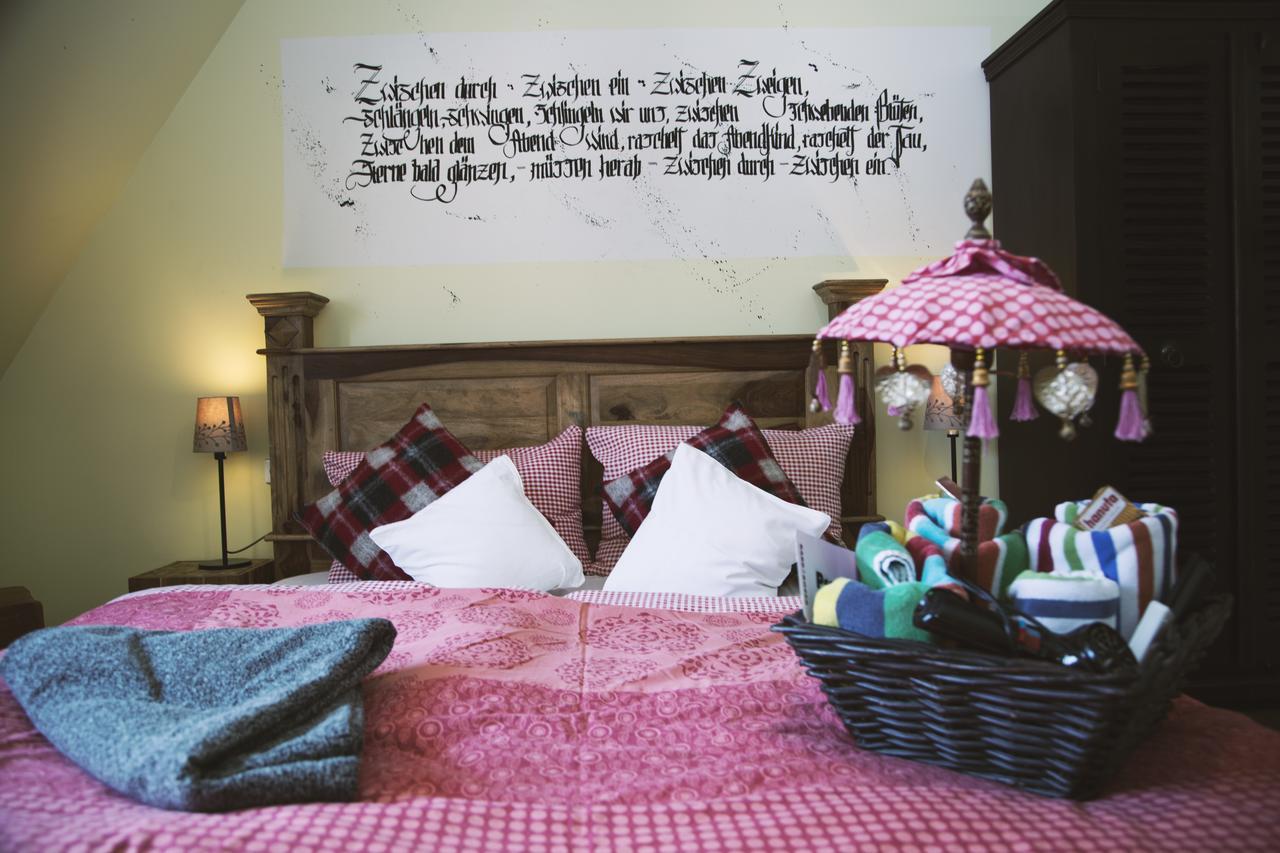 Zwischen durch - Zwischen ein - Zwischen Zweigen,
schlängen, schwingen, Schlingeln wir uns, zwischen schwebenden Blüten,
Zwischen dem Abend Wind, raschelt das Abendkind, raschelt der Tau,
Sterne bald glänzen, - müssen herab - Zwischen durch - Zwischen ein.
hanuta